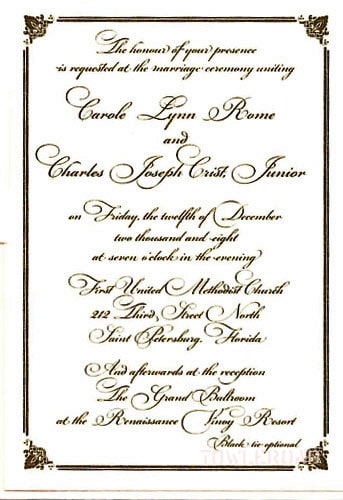 The honour of your presence
is requested at the marriage ceremony uniting
Carole Lynn Rome
and
Charles Joseph Crist, Junior
on Friday, the twelfth of December
two thousand and eight
at seven o'clock in the evening
First United Methodist Church
212 Third Street North
Saint Petersburg, Florida
And afterwards at the reception
The Grand Ballroom
at the Renaissance Vinoy Resort
Black tie optional
TOWLEROAD